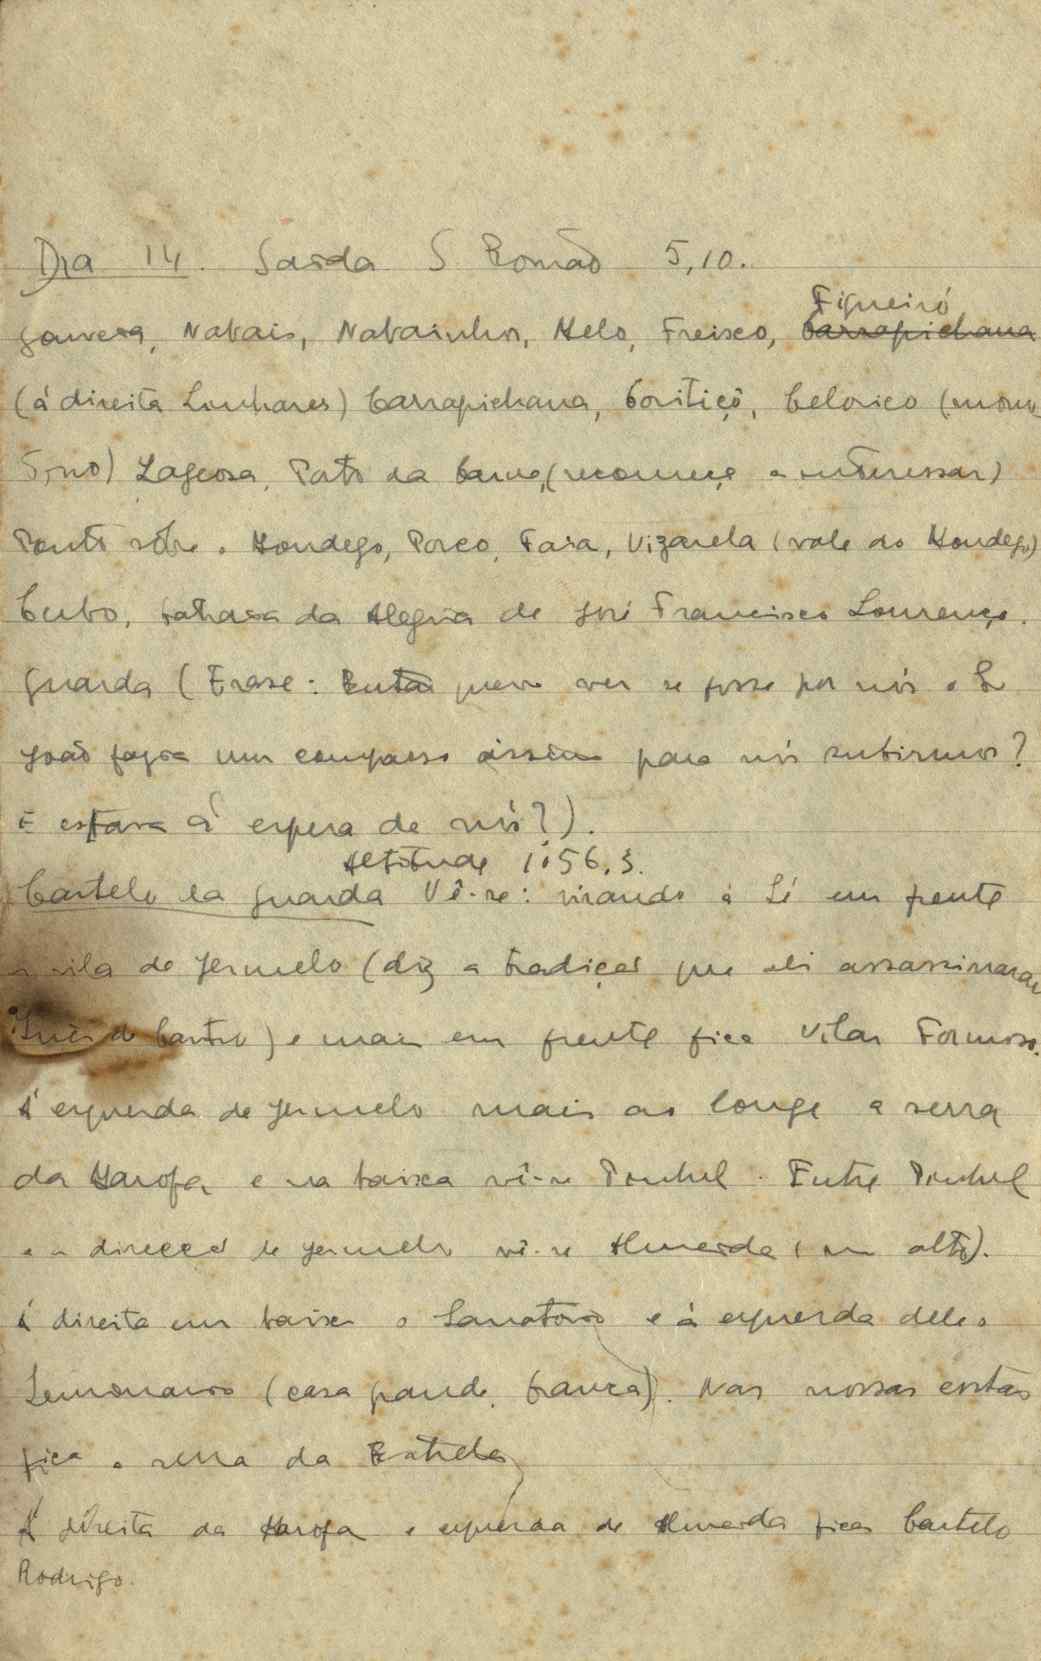 Dia 14. Saída S. Romão 5,10.
Figueiró
Gouveia, Nabais, Nabainhos, Melo, Freixo, Carrapichana
(á direita Linhares) Carrapichana, Cortiçô, Celorico
Lageosa, Porto da Carne, (recomeça a interessar)
Ponte sôbre o Mondego, Porco, Faia, Vizarela (vale do Mondego)
Cubo, Cabana da Alegria de José Francisco Lourenço.
Guarda (Frase: Então quem ver se fosse por nós o Sr
João fazia um compasso assim para nós subirmos?
E estava á espera de nós?).
Altitude 1056,3.
Castelo da Guarda Vê-se: virando á Sé em frente
a vila de Jermelo (diz a tradição que ali assassinaram
Inês de Castro) e mais em frente fica Vilar Formoso.
Á esquerda de Jermelo mais ao longe a serra
da Marofa e na baixa vê-se Pinhel. Entre Pinhel
e a direcção de Jermelo vê-se Almeida (em alto).
Á direita em baixo o Sanatorio e á esquerda dele o
Seminario (casa grande, branca). Nas nossas costas
fica a serra da Estrela
Á direita da Marofa e esquerda de Almeida fica Castelo
Rodrigo.